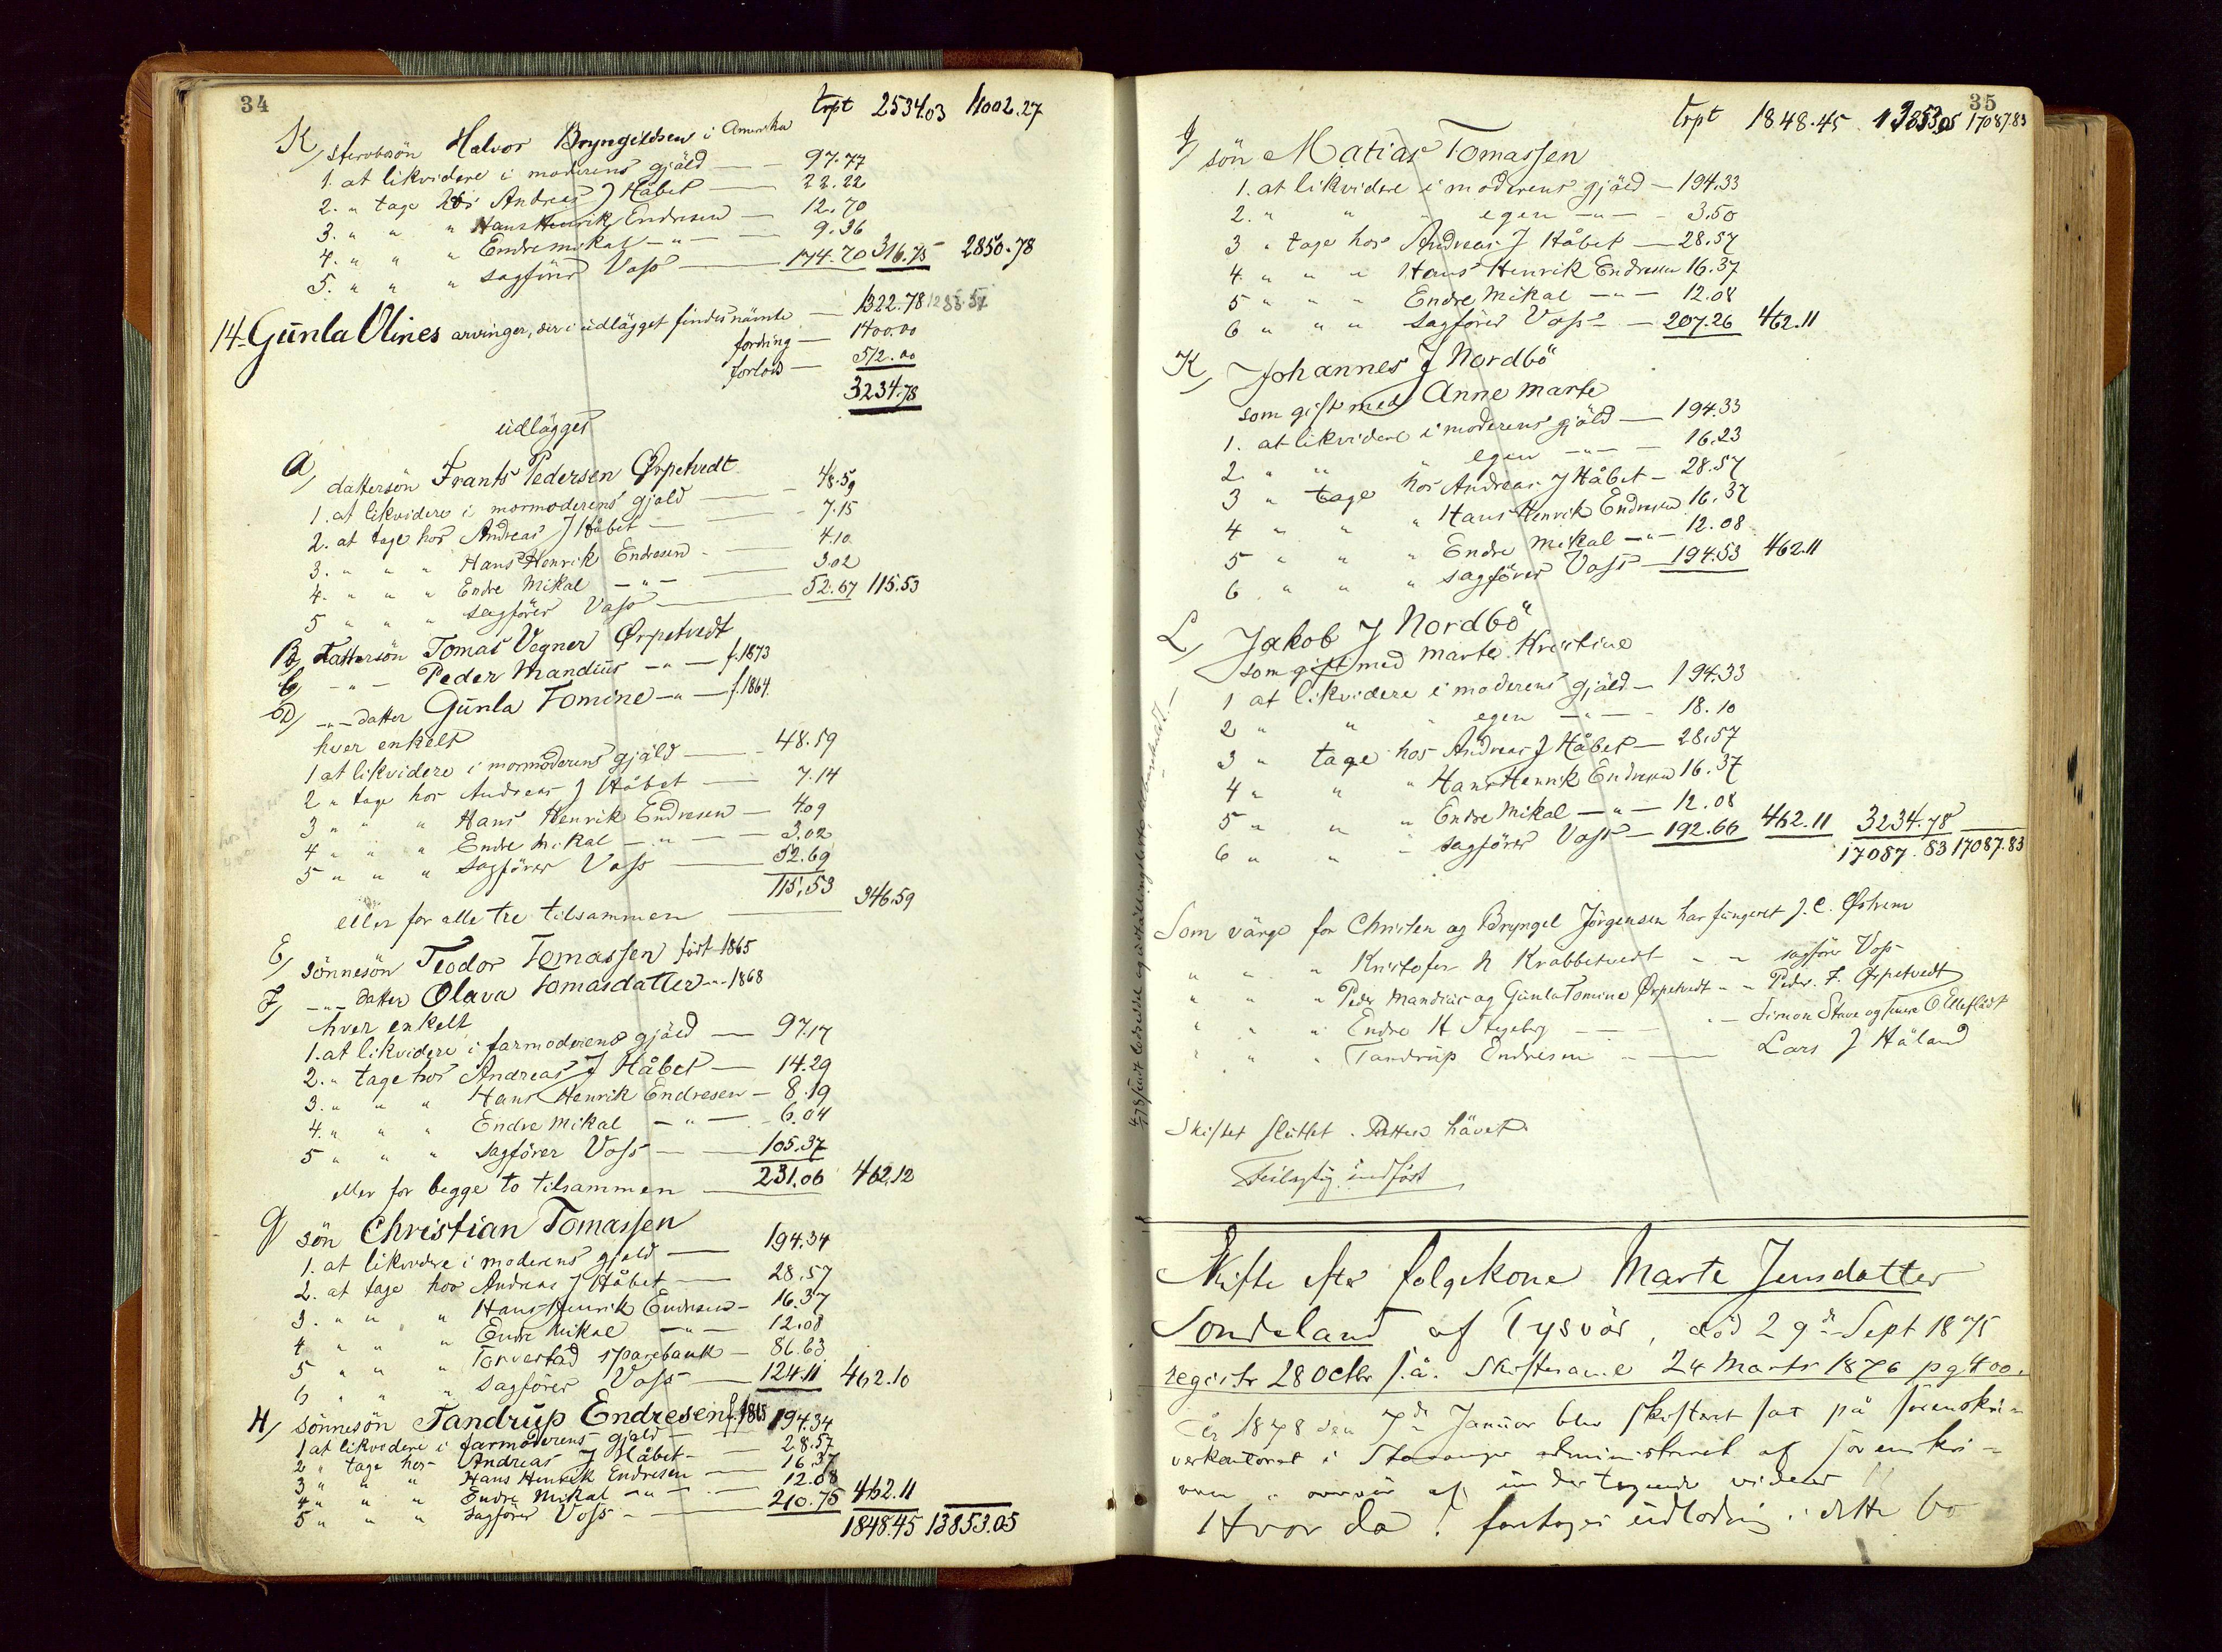 34
trpt 2534.03 11002.27
K, stervbosön Halvor Bryngildsen i Amerika
1. at likvidere i moderens gjäld — 97.77
2. " tage hos Andreas J Håbet — 22.22
3. " " " Hans Henrik Endresen — 12.70
4. " " " Endre Mikal — " — 9.36
5. " " " sagförer Voss — 174.70 316.75 2850.78
14. Günla Olines arvinger, der i üdlägget findes nämte — 1322.78
fordring — 1400.00
forlod — 512.00
3234.78
üdlägges
a, dattersön Frants Pedersen Ørpetvedt
1. at likvidere i mormoderens gjäld — 48.59
2. at tage hos Andreas J Håbet — 7.15
3. " " " Hans Henrik Endresen — 4.10
4. " " " Endre Mikal — " — 3.02
5 " " " sagförer Voss — 52.67 115.53
B, Dattersön Tomas Vegner Ørpetvedt
C, — " — Peder Mandiüs — " — f. 1873
D, — " — datter Günla Tomine — " — f. 1864.
hver enkelt
1 at likvidere i mormoderens gjäld — 48.59
2 " tage hos Andreas J Håbet — 7.14
3 " " " Hans Henrik Endresen — 4.09
4 " " " Endre Mikal — " — 3.02
5 " " " sagförer Voss — 52.69
115.53
eller for alle tre tilsammen — 346.59
E, sönnesön Teodor Tomassen födt 1865
F, — " — datter Olava Tomasdatter — " — 1868
hver enkelt
1. at likvidere i farmoderens gjäld — 97.17
2. " tage hos Andreas J Håbet — 14.29
3. " " " Hans Henrik Endresen — 8.19
4. " " " Endre Mikal — " — 6.04
5 " " " sagförer Voss — 105.37
231.06 462.12
eller for begge to tilsammen
G sön Christian Tomassen
1. at likvidere i moderens gjæld — 194.34
2. at tage hos Andreas J Håbet — 28.57
3. " " " Hans Henrik Endresen — 16.37
4 " " " Endre Mikal — " — 12.08
5 " " " Torvestad sparebank — 86.63
6 " " " sagförer Voss — 124.11 462.10
H, sönnesön Tandrüp Endresen f. 1865
1 at likvidere i farmoderens gjald — 194.34
2 " tage hos Andreas J Håbet — 28.57
3 " " " Hans Henrik Endresen — 16.37
4 " " " Endre Mikal — " — 12.08
5 " " " sagförer Voss — 210.75 462.11
1848.45 13853.05
35
trpt 1848.45 13853.05 17087.83
J, sön Matias Tomassen
1. at likvidere i moderens gjäld — 194.33
2. " " " egen — " — 3.50
3 " tage hos Andreas J Håbet — 28.57
4. " " " Hans Henrik Endresen 16.37
5 " " " Endre Mikal — " — 12.08
6 " " " sagförer Voss — 207.26 462.11
K, Johannes J Nordbö
som gift med Anne Marte
1. at likvidere i moderens gjäld — 194.33
2. " " " egen — " — 16.23
3 " tage hos Andreas J Håbet — 28.57
4 " " " Hans Henrik Endresen 16.37
5 " " " Endre Mikal — " — 12.08
6 " " " sagförer Voss — 194.53 462.11
L, Jakob J Nordbö
som gift med Marte Kristine
1 at likvidere i moderens gjäld — 194.33
2 " " " egen — " — 18.10
3 " tage hos Andreas J Håbet — 28.57
4 " " " Hans Henrik Endresen 16.37
5 " " " Endre Mikal — " — 12.08
6 " " " sagförer Voss — 192.66 462.11 3234.78
17087.83 17087.83
Som värge for Christen og Bryngel Jörgensen har füngeret J. C. Østrem
" " " Kristofer N Krabbetvedt " " sagförer Voss
" " " Peder Mandiüs og Günla Tomine Ørpetvedt " " Peder F. Ørpetvedt
" " " Endre H Stegeberg — " — Simon Strüve og
" " " Tandrüp Endresen " — Lars J Håland
Skiftet slüttet. Retten hävet.
Feilagtig indfört
Skifte efter folgekone Marte Jensdatter
Sondeland af Tysvör, död 29de Sept 1875
registr 28 Octbr s. å. Skiftesaml 24 Marts 1876 pg 400.
År 1878 den 7de Januar blev skifteret sat på sorenskri-
verkontoret i Stavanger administreret af sorenskri-
veren i overvär af undertegnede vidner
Hvor da! foretoges üdlodning i dette bo